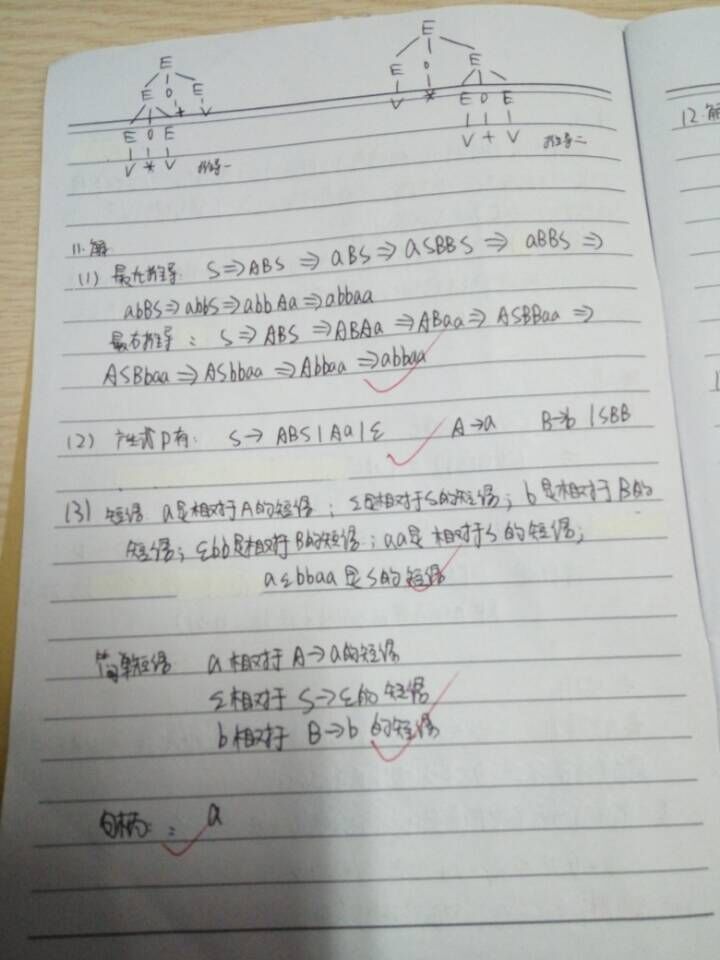 E E
E O E E O E
E O E + V V * E O E
V * V 推导一 V + V 推导二
12.解
11.解
(1) 最左推导: S⇒ABS ⇒ aBS ⇒ aSBBS ⇒ aBBS ⇒
abBS⇒abbS⇒abbAa⇒abbaa
最右推导: S⇒ABS ⇒ABAa ⇒ABaa⇒ ASBBaa ⇒
ASBbaa ⇒ASbbaa ⇒Abbaa ⇒abbaa
(2) 产生式P有: S→ ABS|Aa|ε A→a B→b |SBB
(3) 短语 a是相对于A的短语; ε是相对于S的短语; b是相对于B的
短语; εbb是相对于B的短语; aa是相对于S的短语;
aεbbaa是S的短语
简单短语 a相对于A→a的短语
ε相对于 S→ε的短语
b相对于 B→b 的短语
句柄: a